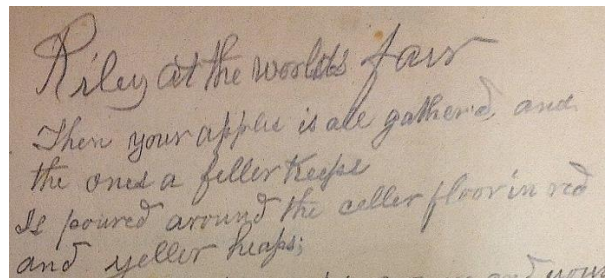 Riley at the worlds fair
Then your apples is all gatherd, and
the ones a feller keeps
Is poured around the celler floor in red
and yeller heaps;
and your